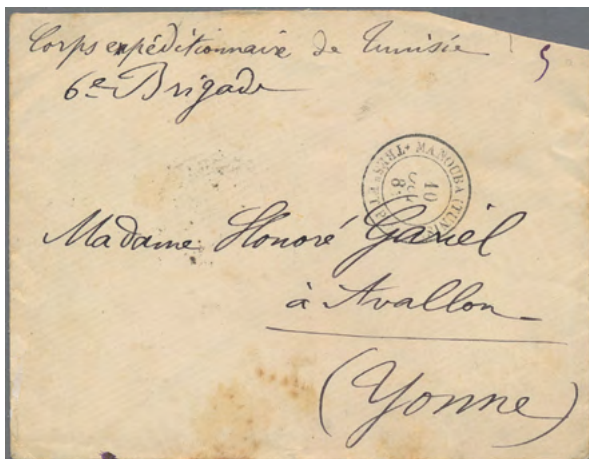 Corps expéditionnaire de Tunisie
6e Brigade
MANOUBA (TUNIS
TRES. ET
10
8
Madame Honoré Gariel
à Avallon
(Yonne)